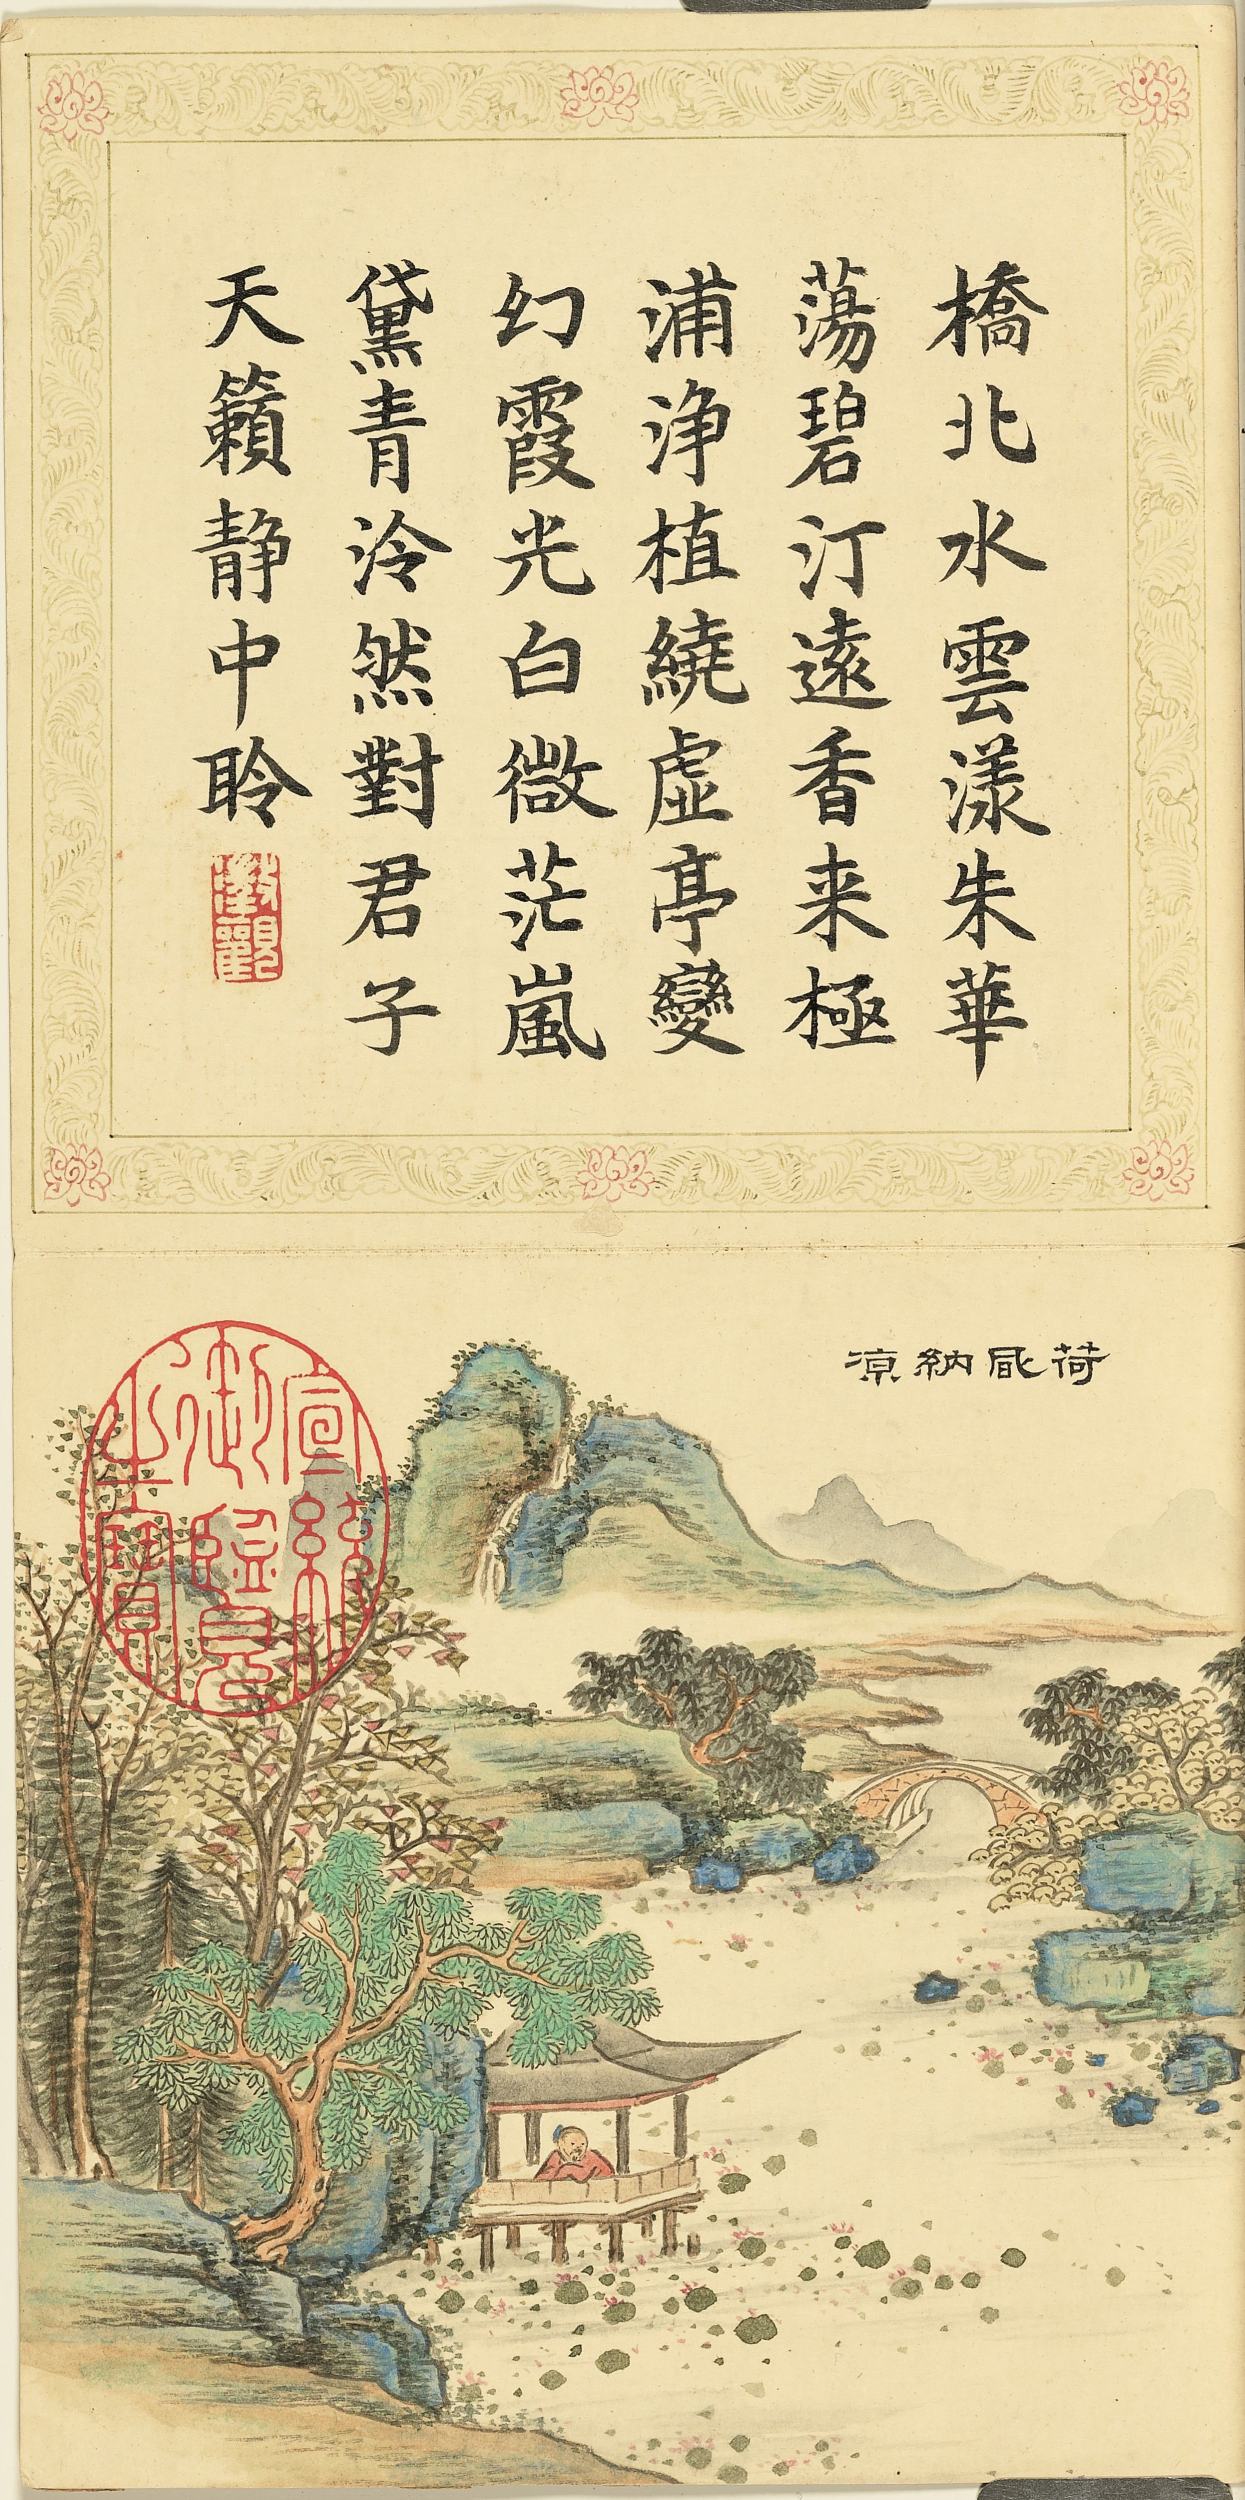 橋北水雲漾朱華
蕩碧汀遠香来極
浦浄植繞虛亭變
幻霞光白微茫嵐
黛青泠然對君子
天籟静中聆
荷凮納涼
宣統
御覽
之寶